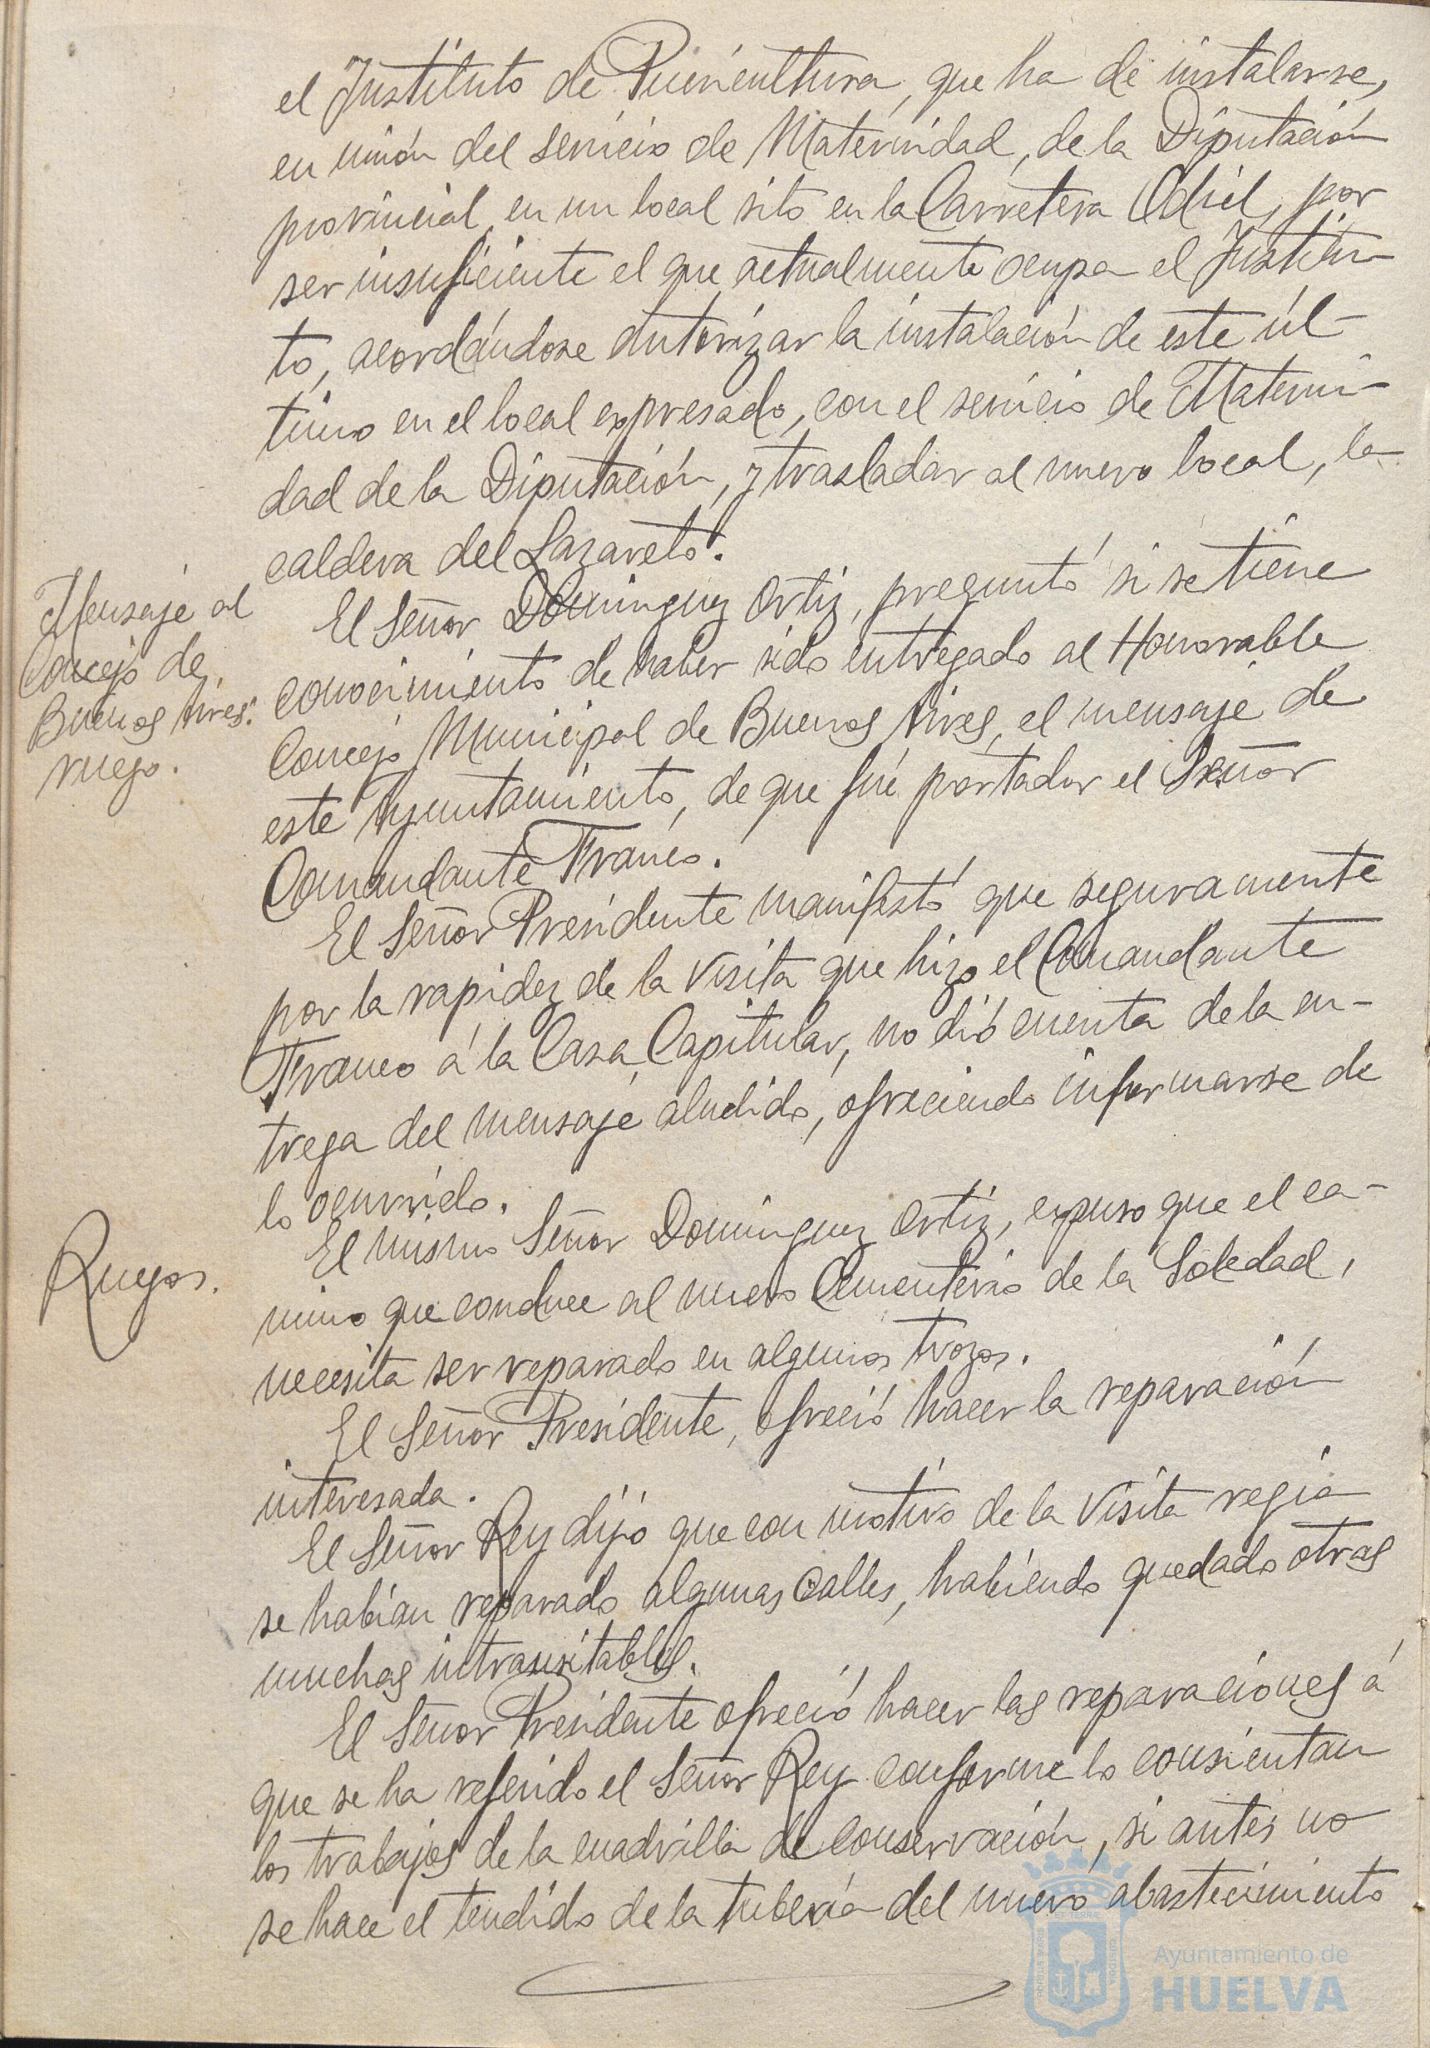 el Instituto de Puericultura, que ha de instalarse,
en unión del servicio de Maternidad, de la Diputación
provincial, en un local sito en la Carretera Odiel, por
ser insuficiente el que actualmente ocupa el Institu-
to, acordándose autorizar la instalación de este úl-
timo en el local expresado, con el servicio de Materni-
dad de la Diputación, y trasladar al nuevo local, la
caldera del Lazareto.
Mensaje al
Concejo de
Buenos Aires:
ruego.
El Señor Dominguez Ortiz, preguntó si se tiene
conocimiento de haber sido entregado al Honorable
Concejo Municipal de Buenos Aires, el mensaje de
este Ayuntamiento, de que fué portador el Señor
Comandante Franco.
El Señor Presidente manifestó que seguramente
por la rapidez de la visita que hizo el Comandante
Franco á la Casa Capitular, no dió cuenta de la en-
trega del mensaje aludido, ofreciendo informarse de
lo ocurrido.
Ruegos.
El mismo Señor Dominguez Ortiz, expuso que el ca-
mino que conduce al nuevo Cementerio de la Soledad,
necesita ser reparado en algunos trozos.
El Señor Presidente, ofreció hacer la reparación
interesada.
El Señor Rey dijó que con motivo de la visita regia
se habían reparado algunas calles, habiendo quedado otras
muchas intransitables.
El Señor Presidente ofreció hacer las reparaciones á
que se ha referido el Señor Rey conforme lo consientan
los trabajos de la cuadrilla de conservación, si antes no
se hace el tendido de la tubería del nuevo abastecimiento
Ayuntamiento de
HUELVA